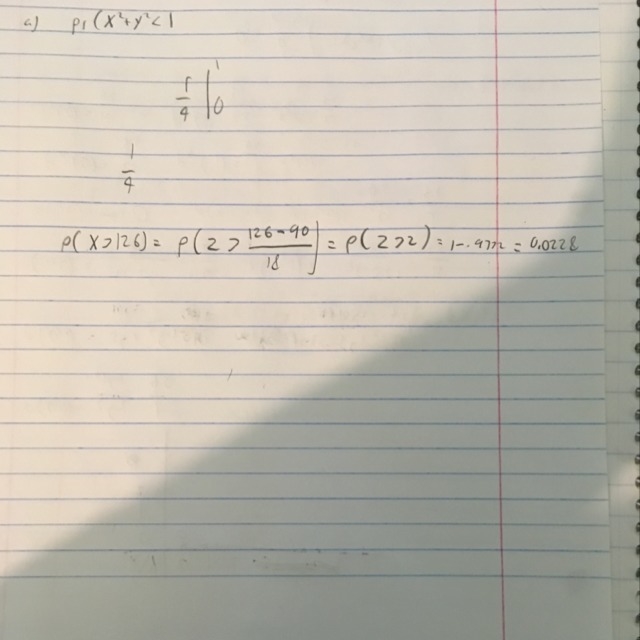 c) P, (X²+y²<1
r/4 |¹₀
1/4
P(X>126) = P(Z > 126-90/18) = P(Z>2) = 1-.9772 = 0.0228